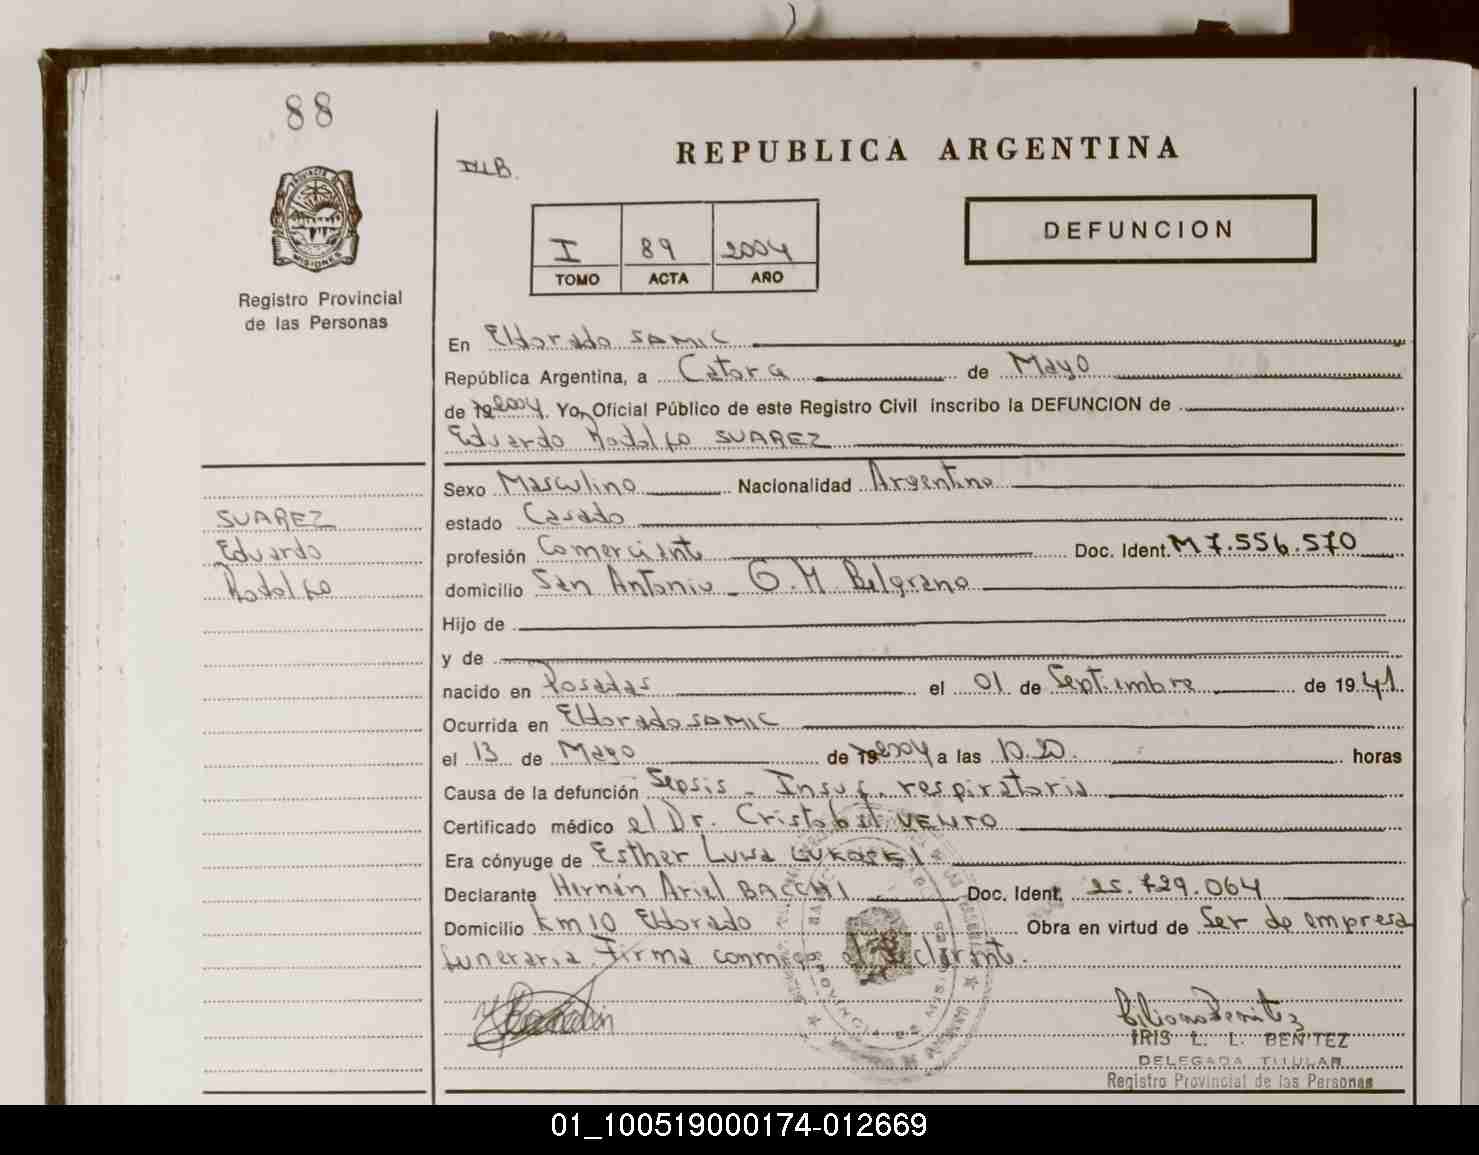 88
REPUBLICA ARGENTINA
DEFUNCION
I 89 2004
TOMO ACTA AÑO
PROVINCIA DE
MISIONES
Registro Provincial
de las Personas
En Eldorado SAMIC
República Argentina, a Catorce de Mayo
de 19 2004. Yo, Oficial Público de este Registro Civil inscribo la DEFUNCION de
Eduardo Rodolfo SUAREZ
SUAREZ
Eduardo
Rodolfo
Sexo Masculino Nacionalidad Argentino
estado Casado
profesión Comerciante Doc. Ident. M 7.556.570
domicilio San Antonio - G. M. Belgrano
Hijo de
y de
nacido en Posadas el 01 de Septiembre de 1941.
Ocurrida en Eldorado SAMIC
el 13 de Mayo de 19 2004 a las 10.20. horas
Causa de la defunción Sepsis - Insuf. respiratoria
Certificado médico el Dr. Cristobal VENTO
Era cónyuge de Esther
Declarante Hernán Ariel BACCHI Doc. Ident. 25.729.064
Domicilio Km 10 Eldorado Obra en virtud de Ser de empresa
funeraria. Firma conmigo el declarante.
IRIS L. L. BENITEZ
DELEGADA TITULAR
Registro Provincial de las Personas
01_100519000174-012669